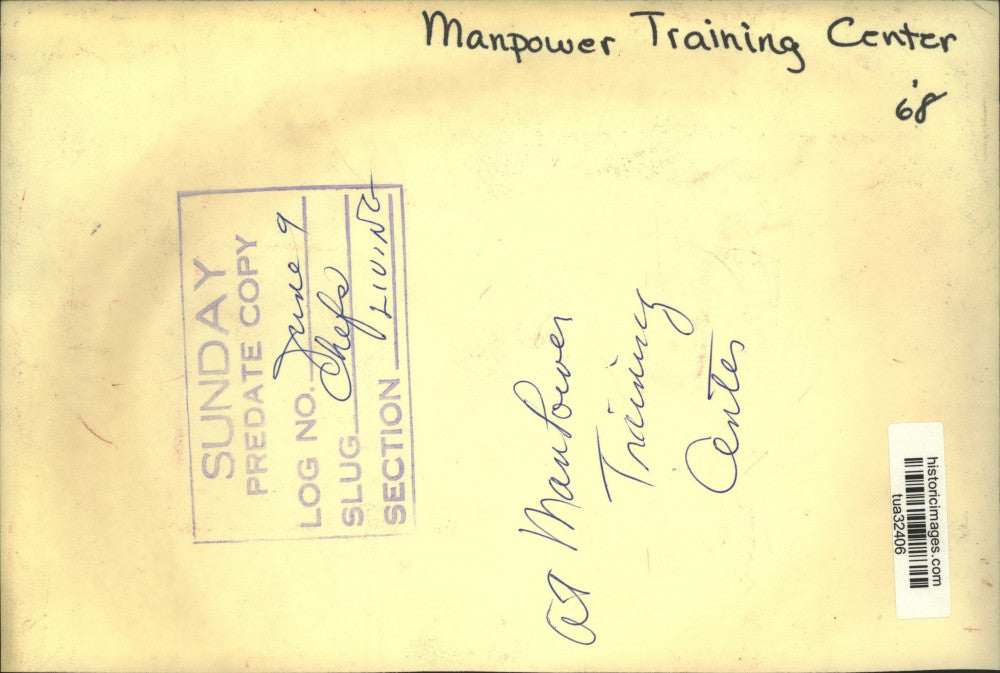 Manpower Training Center
'68
SUNDAY
PREDATE COPY
LOG NO. June 9
SLUG Chefs
SECTION LIVING
at Manpower
Training
Center
historicimages.com
tua32406